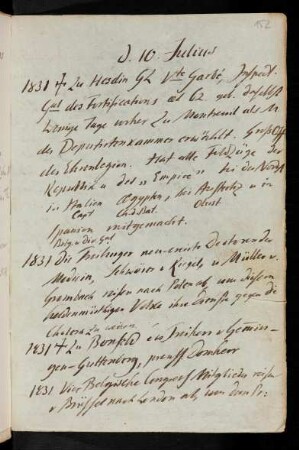 152
d. 10 Julius
1831 † Zu Hesdin GL Vte Garbé, Inspect.
Gnal des Fortifications at 62 geb. daselbst
Wenige Tage vorher zu Montreuil als M.
der Deputirtenkammer erwählt. GroßOff
der Ehrenlegion. Hat alle Feldzüge der
Republik u des "Empire" bei der Nord
in Italien Ægypten bei Austerlitz u in
Capt Chd Bat. Obrist
Spanien mitgemacht.
Brig u Div Gnl
1831 Die Freiburger neu-creirte Doctoren der
Medicin, Schwörer v Kirzel, u Müller v
Grombach reisen nach Polen ab, um diesem
heldenmüthigen Volke ihre Dienste gegen die
Cholera zu weihen.
1831 † Zu Bonfeld ein Freiherr v Gemmin-
gen-Guttenberg, preuss Domherr
1831 Vier Belgische Congress Mitglieder reisen
v Brüssel nach London ab, um dem Pr-